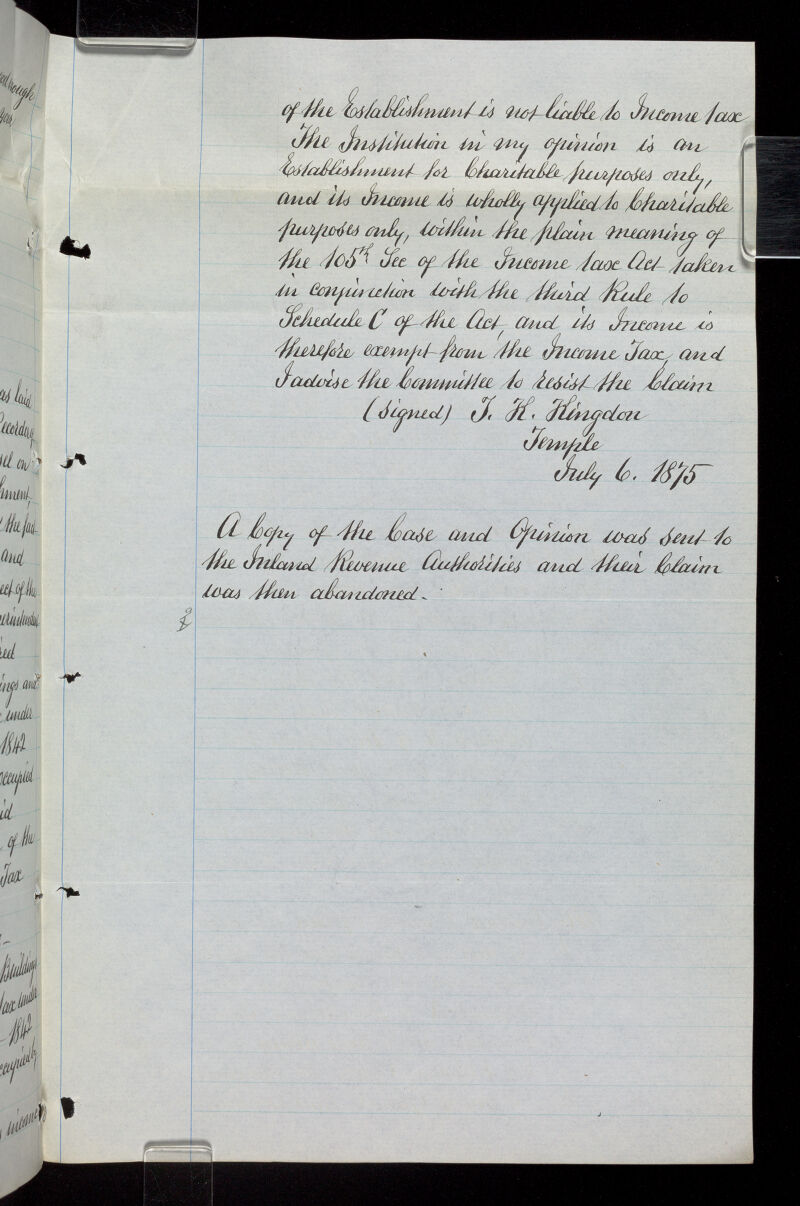 of the Establishment is not liable to Income tax
The Institution in my opinion is an
Establishment for Charitable purposes only,
and its Income is wholly applied to Charitable
purposes only, within the plain meaning of
the 105th Sec of the Income tax Act taken
in conjunction with the third Rule to
Schedule C of the Act, and its Income is
therefore exempt from the Income Tax, and
I advise the Committee to resist the Claim
(signed) T. K. Kingdon
Temple
July 6. 1875
A Copy of the Case and Opinion was sent to
the Inland Revenue Authorities and their Claim
was then abandoned.
as laid
on
the
and
of the
and
under
1842
occupied
of the
Tax
Building
tax under
1842
income